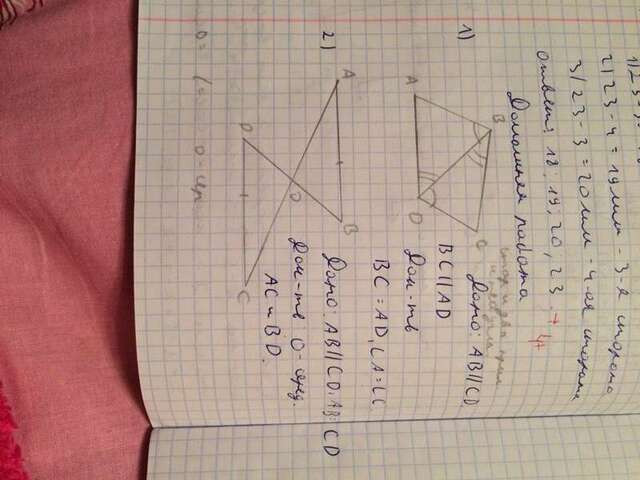 2) 23 - 4 = 19 мм - 3-я сторона
3) 23 - 3 = 20 мм - 4-ая сторона
ответ: 18; 19; 20; 23.
Домашняя работа
1)
A
B
C
D
Дано: AB || CD
BC || AD
Док-ть
BC = AD, ∠A = ∠C
2)
A
B
O
D
C
Дано: AB || CD, AB = CD
Док-ть: O - сер.
AC и BD.